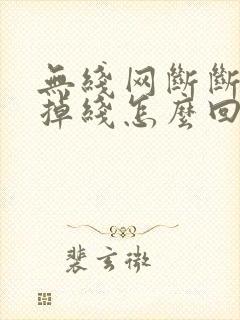 無綫网斷斷
掉綫怎麽回
裴玄微